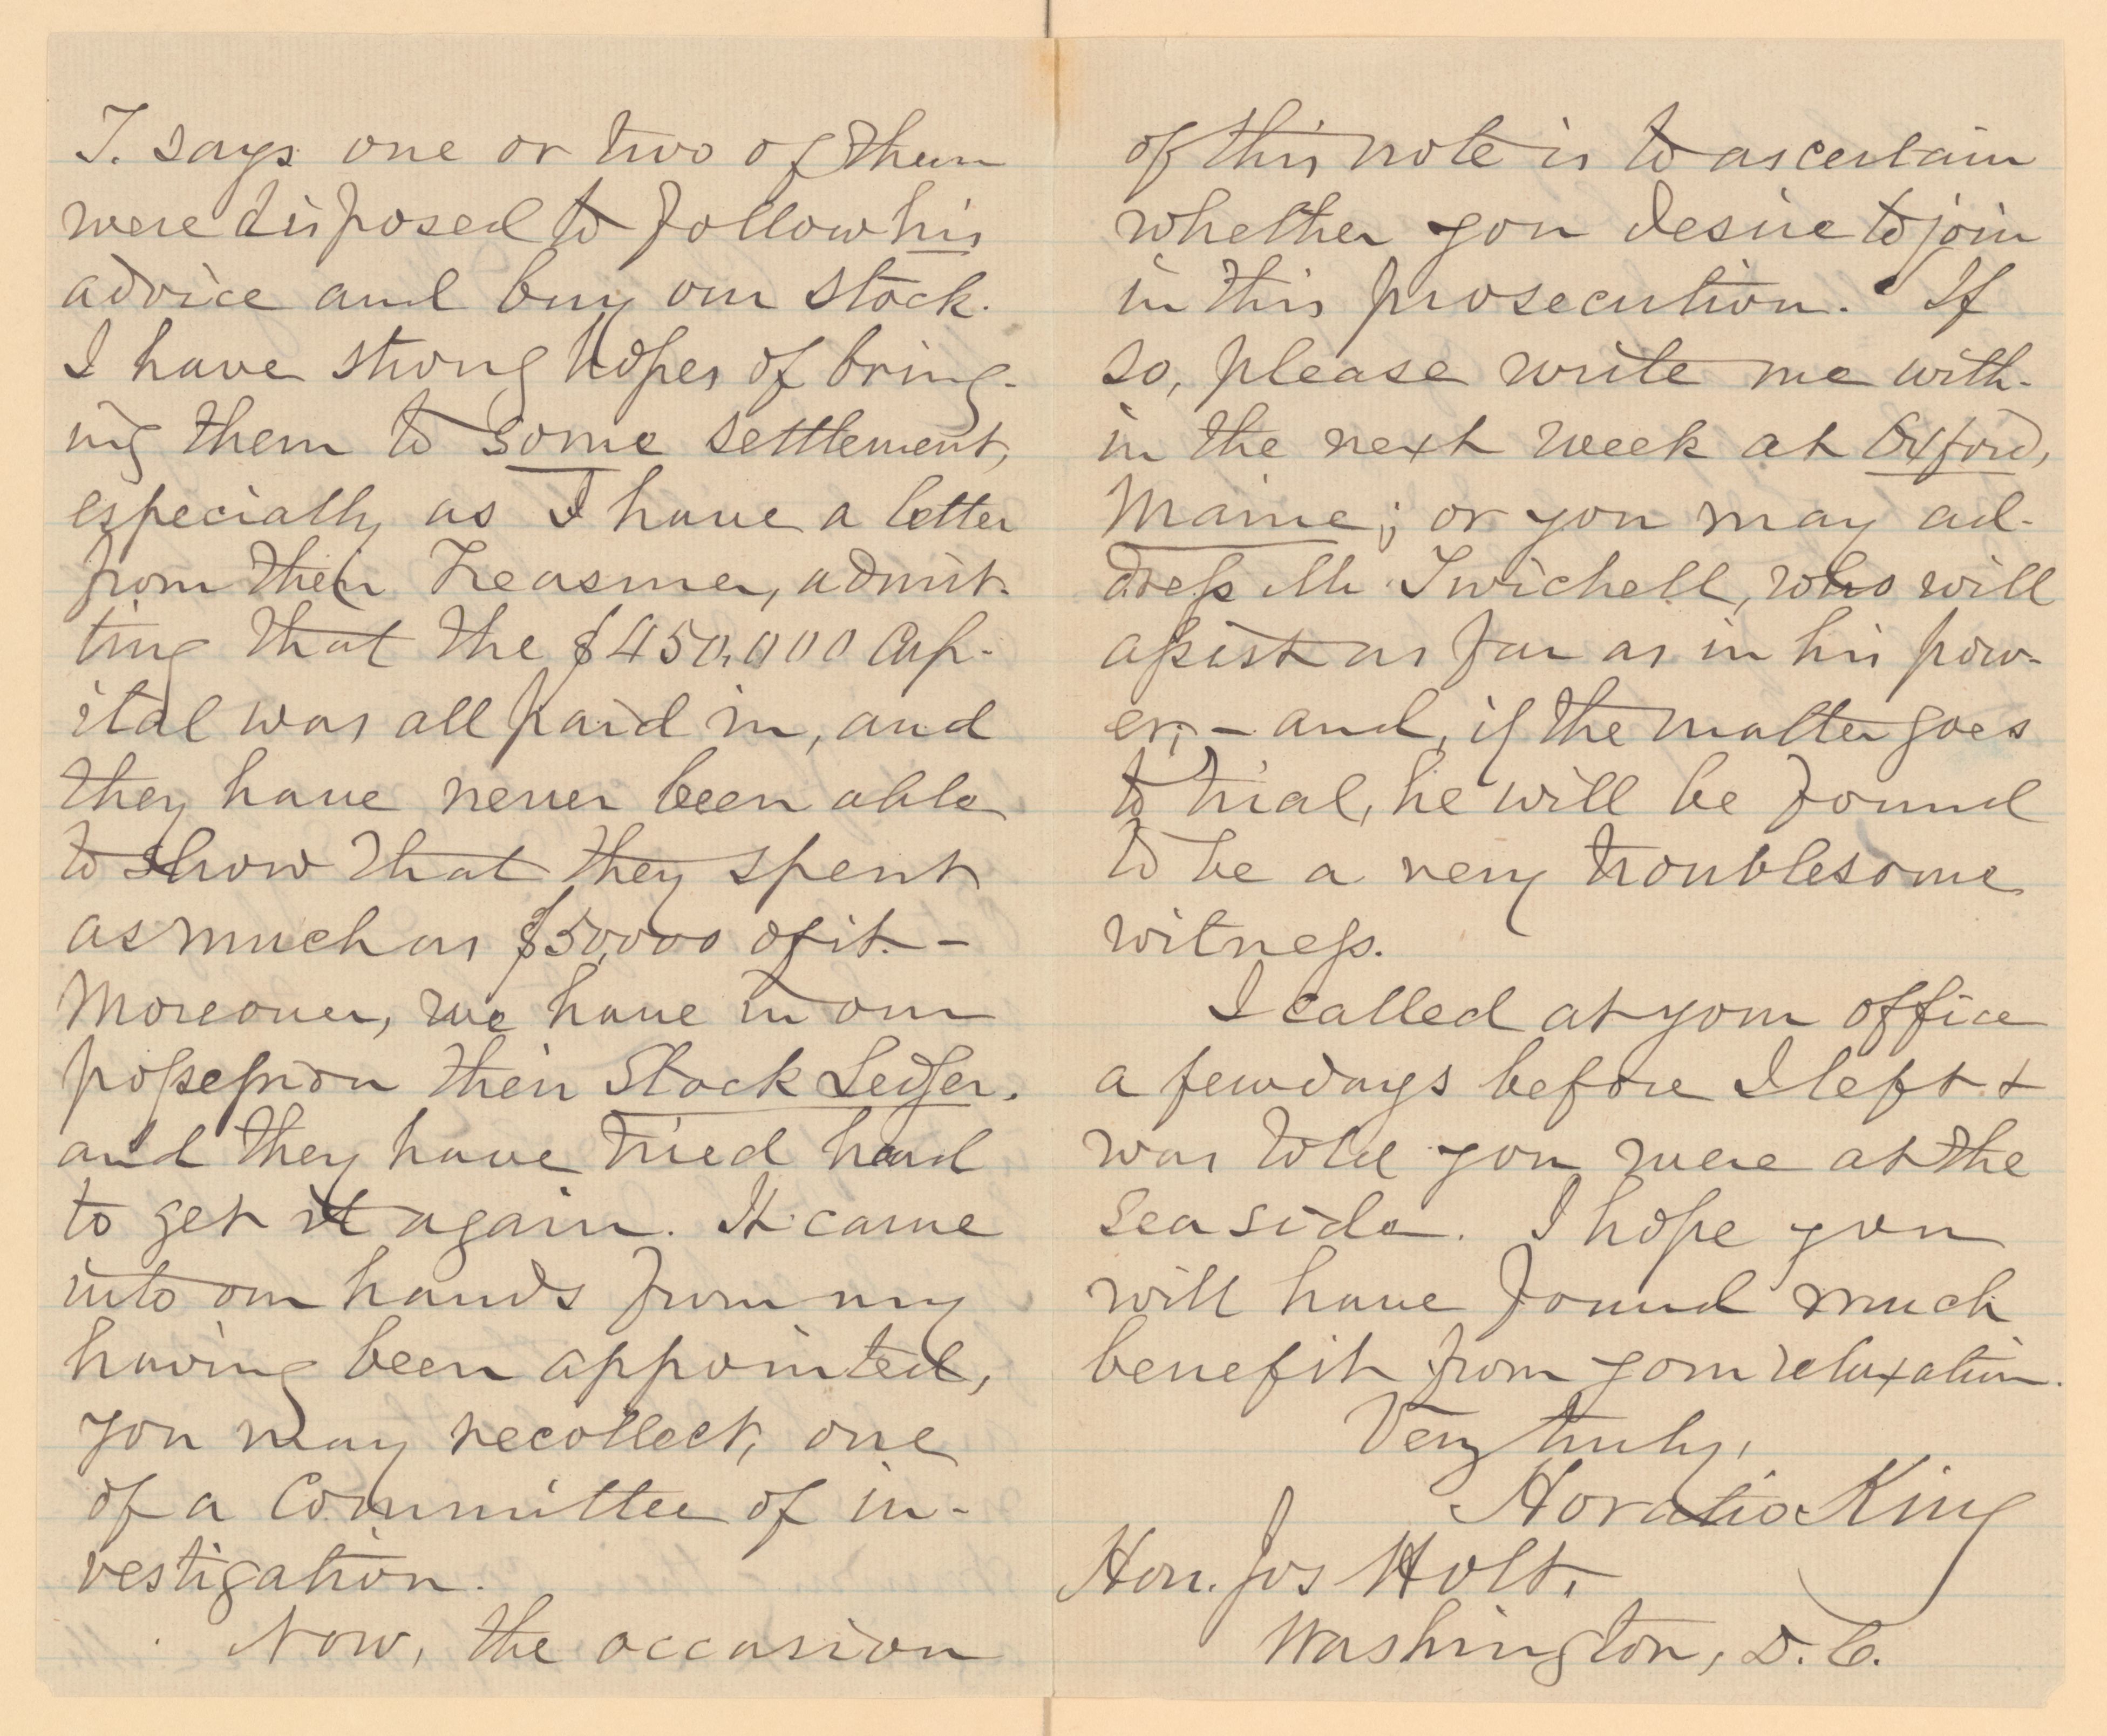 T. says one or two of them
were disposed to follow his
advice and buy our stock.
I have strong hopes of bring-
ing them to some settlement,
especially as I have a letter
from their Treasurer, admit-
ting that the $450,000 Cap-
ital was all paid in, and
they have never been able
to show that they spent
as much as $50,000 of it. –
Moreover, we have in our
possession their Stock Ledger.
and they have tried hard
to get it again. It came
into our hands from my
having been appointed,
you may recollect, one
of a Committee of in-
vestigation.
Now, the occasion
of this note is to ascertain
whether you desire to join
in this prosecution. If
so, please write me with-
in the next week at Oxford,
Maine; or you may ad-
dress Mr Twichell, who will
assist as far as in his pow-
er; – and, if the matter goes
to trial, he will be found
to be a very troublesome
witness.
I called at your office
a few days before I left &
was told you were at the
sea side. I hope you
will have found much
benefit from your relaxation.
Very truly,
Horatio King
Hon. Jos Holt.
Washington, D.C.